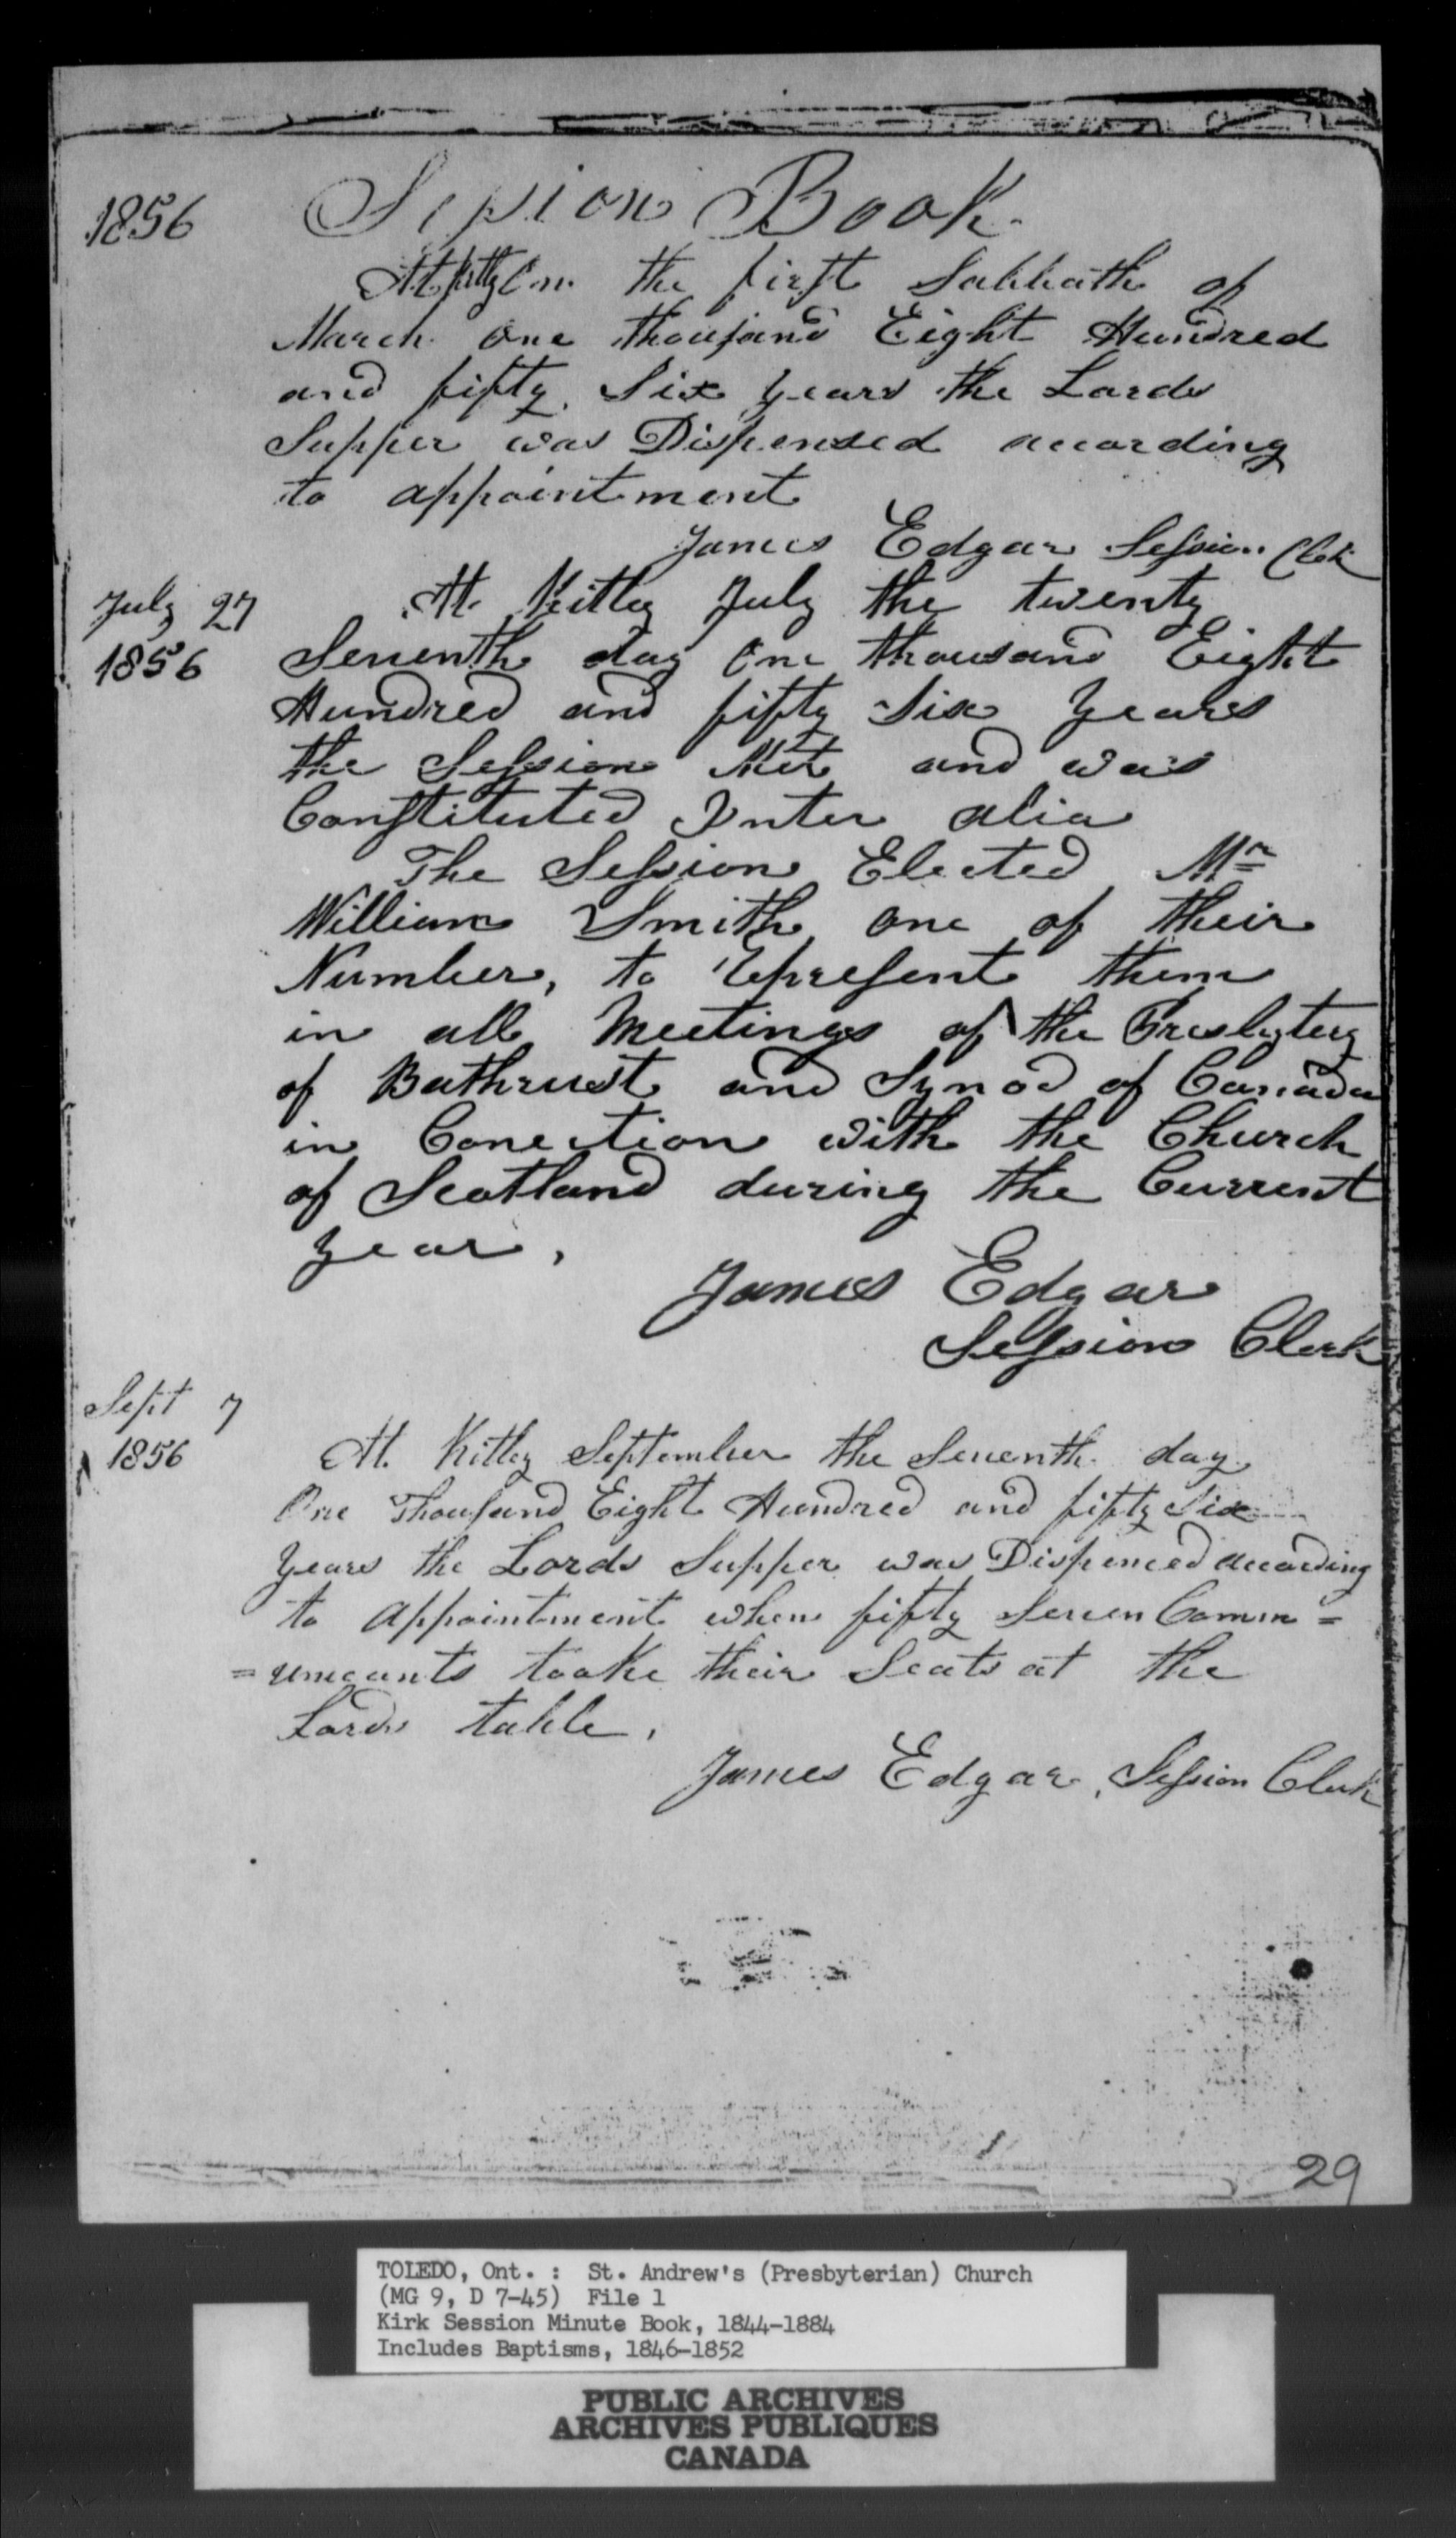 1856 Session Book
At Kitley On the first Sabbath of
March One thousand Eight Hundred
and fifty Six years the Lords
Supper was Dispensed according
to appointment
James Edgar Session Clek
July 27 At Kitley July the twenty
1856 Seventh day One thousand Eight
Hundred and fifty Six years
the Session Met and was
Constituted Inter alia
The Session Elected Mr
William Smith one of their
Number, to represent them
in all Meetings of the Presbytery
of Bathrust and Synod of Canada
in Conection with the Church
of Scotland during the Current
year,
James Edgar
Session Clerk
Sept 7
1856 At Kitley September the Seventh day
One Thousand Eight Hundred and fifty Six
years the Lords Supper was Dispenced according
to appointment when fifty Seven Comm=
=unicants tooke their Seats at the
Lords table,
James Edgar, Session Clerk
29
TOLEDO, Ont. : St. Andrew's (Presbyterian) Church
(MG 9, D 7-45) File 1
Kirk Session Minute Book, 1844-1884
Includes Baptisms, 1846-1852
PUBLIC ARCHIVES
ARCHIVES PUBLIQUES
CANADA